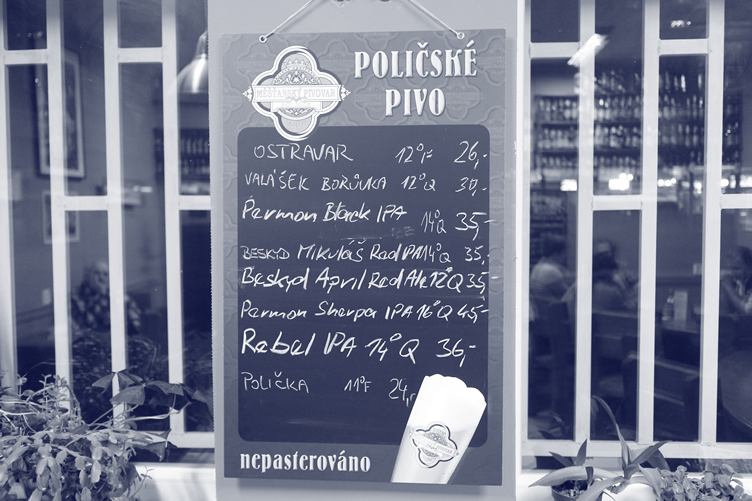 POLIČSKÉ
PIVO
MĚŠŤANSKÝ PIVOVAR
OSTRAVAR 12°F 26,-
VALÁŠEK BORŮVKA 12°Q 30,-
Permon Black IPA 14°Q 35,-
BESKYD Mikuláš Red IPA 14°Q 35,-
Beskyd April Red Ale 12°Q 35,-
Permon Sherpa IPA 16°Q 45,-
Rebel IPA 14°Q 36,-
POLIČKA 11°F 24,-
nepasterováno